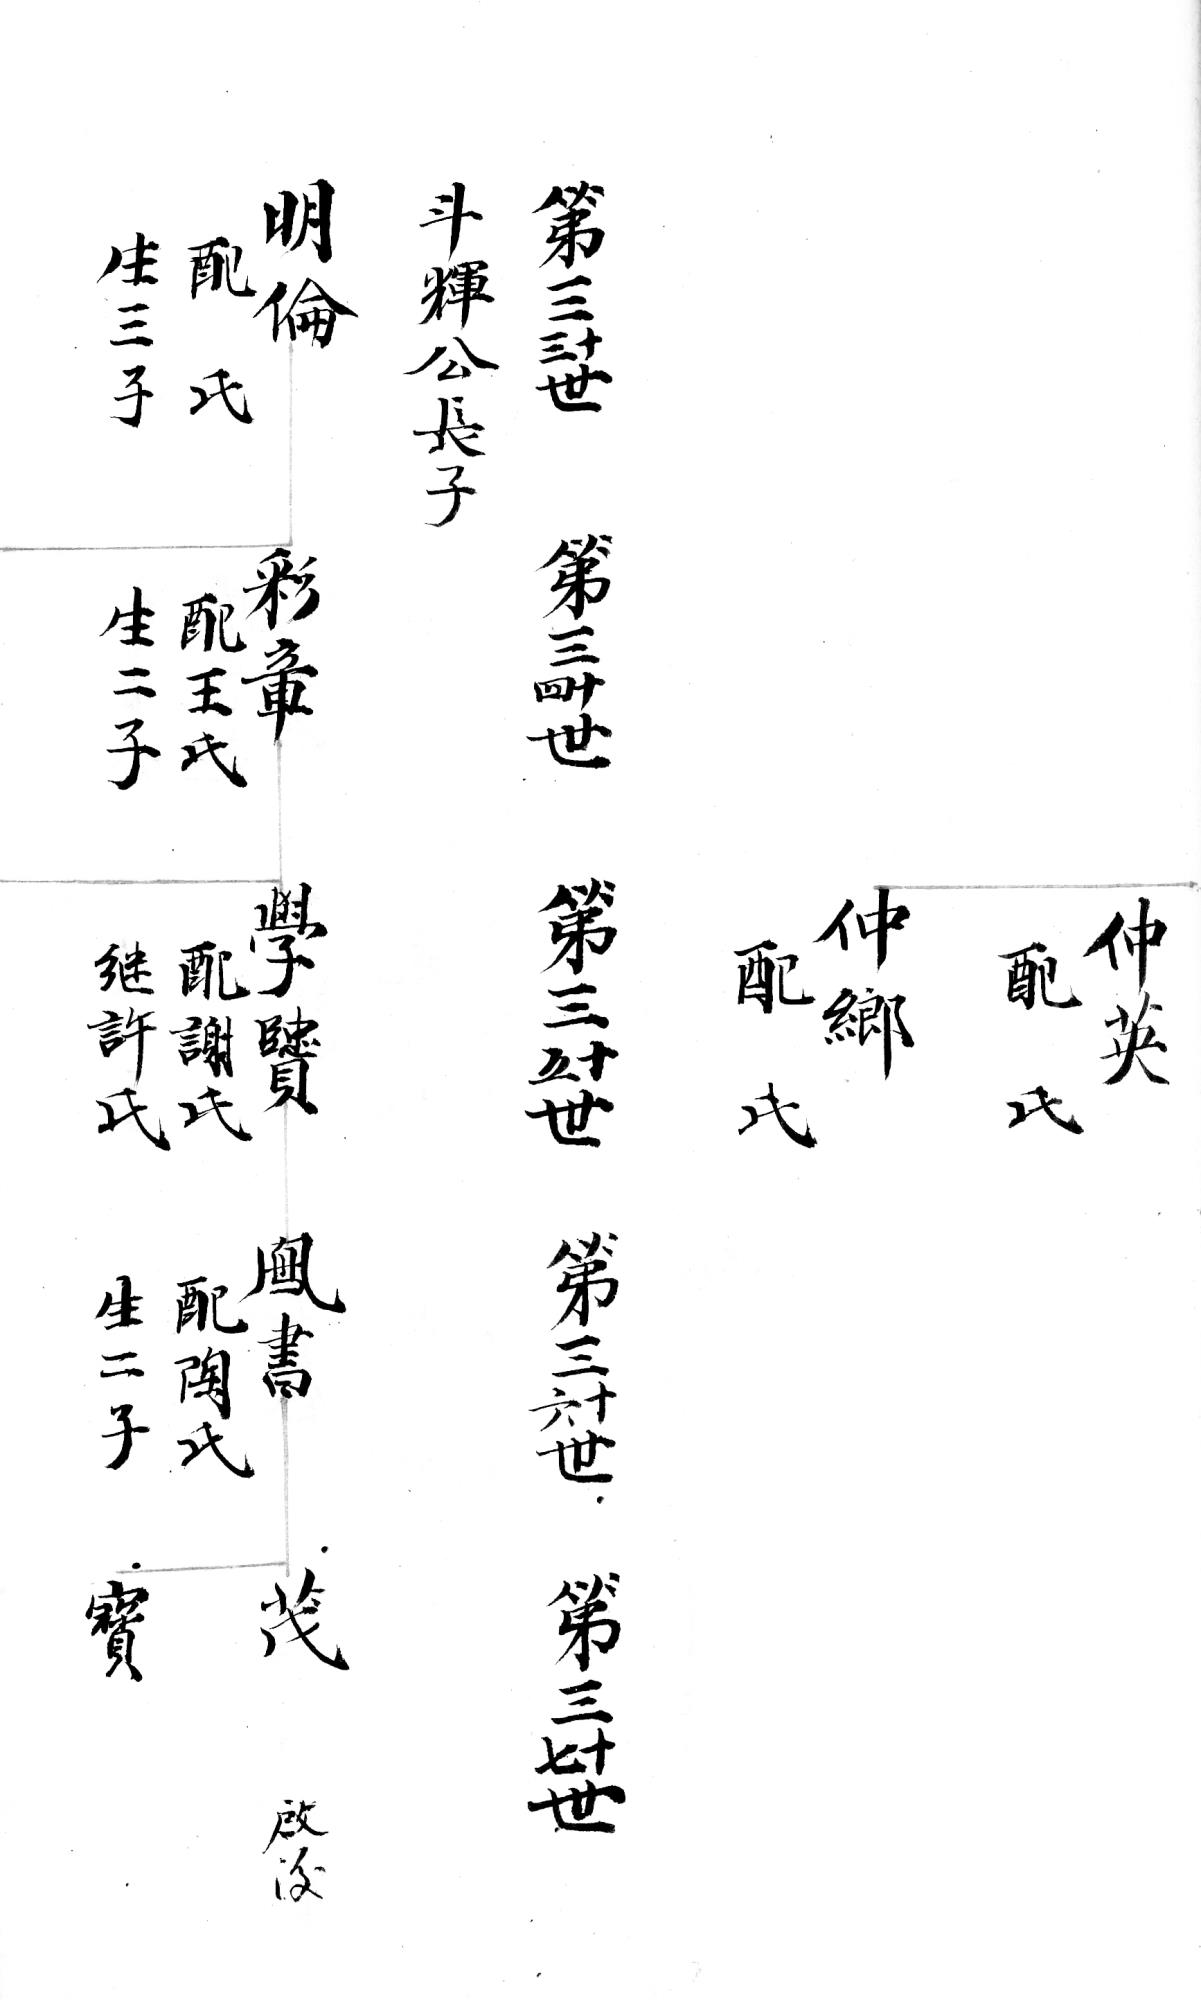 仲英
配 氏
仲鄉
配 氏
第三十三世
第三十四世
第三十五世
第三十六世
第三十七世
斗輝公長子
明倫
配 氏
生三子
彩章
配王氏
生二子
學賢
配謝氏
继許氏
鳳書
配陶氏
生二子
茂
啟
寶